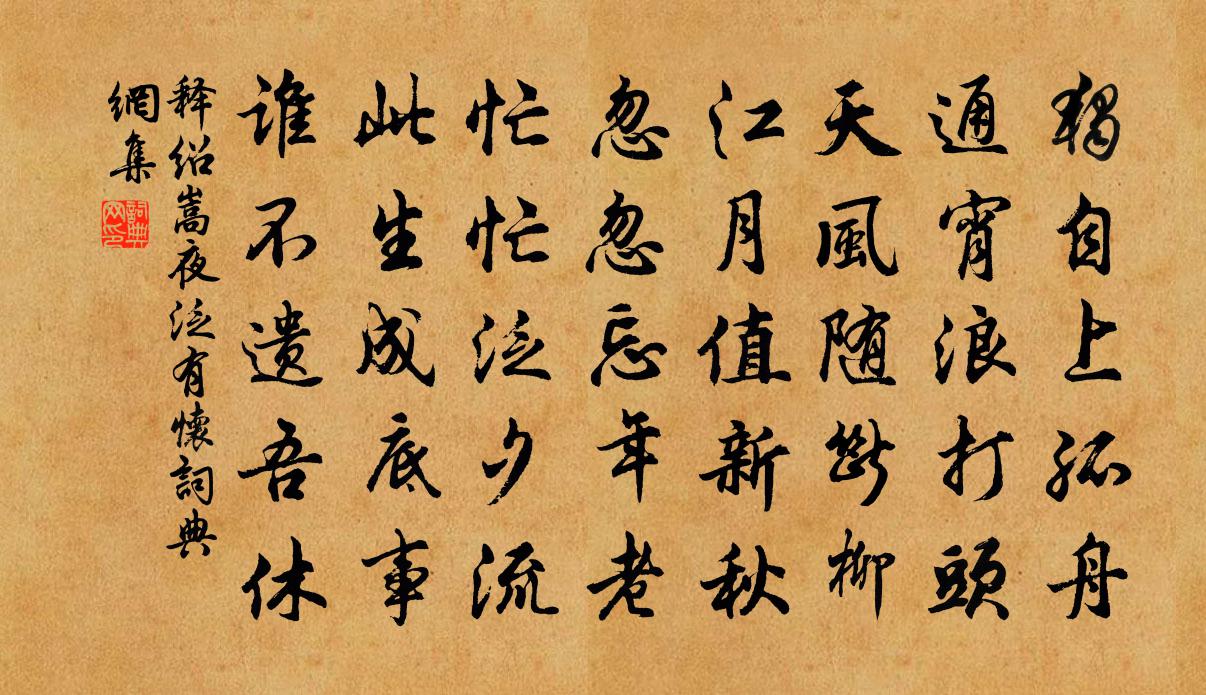 獨自上孤舟
通宵浪打頭
天風随斷柳
江月值新秋
忽忽忘年老
忙忙泛夕流
此生成底事
谁不遗吾休
释绍嵩夜泛有懷詞典
網集
詞典網印